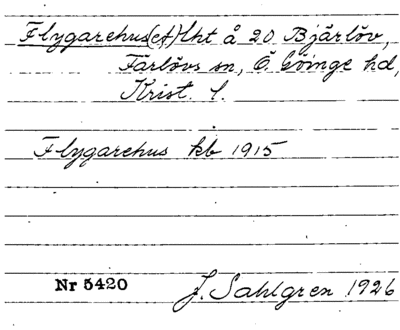 Flygarehus(et) lht å 20 Bjärlöv,
Färlövs sn, Ö Göinge hd,
Krist. l.
Flygarehus kb 1915
Nr 5420
J. Sahlgren 1926